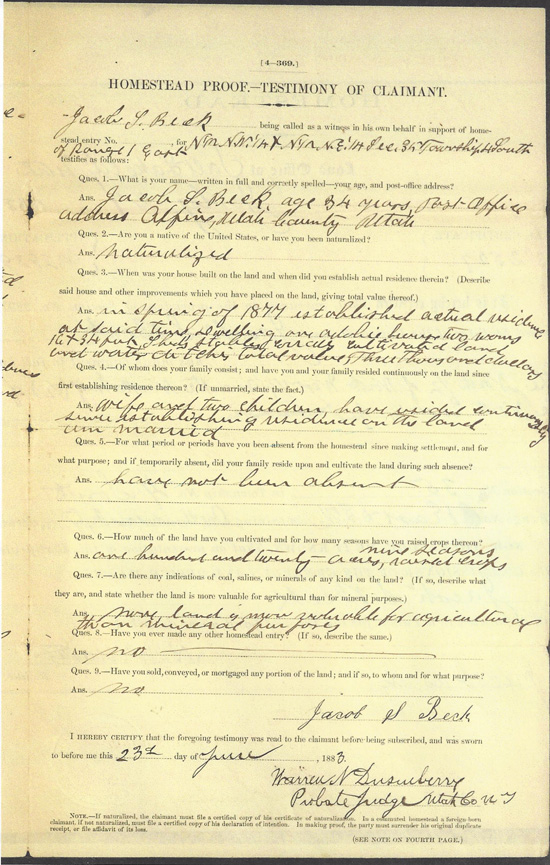 (4—369.)
HOMESTEAD PROOF.—TESTIMONY OF CLAIMANT.
Jacob S. Beck, being called as a witness in his own behalf in support of home-
stead entry No. , for N½ N.W. ¼ & N½ N.E. ¼ Sec. Township 4 South
of Range 1 East
testifies as follows:
Ques. 1.—What is your name—written in full and correctly spelled—your age, and post-office address?
Ans. Jacob S. Beck, age 34 years, Post Office
address Alpine, Utah County Utah
Ques. 2.—Are you a native of the United States, or have you been naturalized?
Ans. Naturalized
Ques. 3.—When was your house built on the land and when did you establish actual residence therein? (Describe
said house and other improvements which you have placed on the land, giving total value thereof.)
Ans. in spring of 1877 established actual residence
at said time, dwelling one adobie house two rooms
16 x 34 feet, Shed, stables, cultivated land
and water ditches total value, Three Thousand dollars
Ques. 4.—Of whom does your family consist; and have you and your family resided continuously on the land since
first establishing residence thereon? (If unmarried, state the fact.)
Ans. Wife and two children, have resided continuously
since establishing residence on the land
am married
Ques. 5.—For what period or periods have you been absent from the homestead since making settlement, and for
what purpose; and if temporarily absent, did your family reside upon and cultivate the land during such absence?
Ans. have not been absent
Ques. 6.—How much of the land have you cultivated and for how many seasons have you raised crops thereon?
nine seasons
Ans. one hundred and twenty acres, raised crops
Ques. 7.—Are there any indications of coal, salines, or minerals of any kind on the land? (If so, describe what
they are, and state whether the land is more valuable for agricultural than for mineral purposes.)
Ans. none, land is more valuable for agricultural
than mineral purposes
Ques. 8.—Have you ever made any other homestead entry? (If so, describe the same.)
Ans. no
Ques. 9.—Have you sold, conveyed, or mortgaged any portion of the land; and if so, to whom and for what purpose?
Ans. no
Jacob S Beck
I HEREBY CERTIFY that the foregoing testimony was read to the claimant before being subscribed, and was sworn
to before me this 23d day of June, 1883.
Warren N Dusenberry
Probate Judge Utah Co. U T
NOTE.—If naturalized, the claimant must file a certified copy of his certificate of naturalization. In a commuted homestead a foreign-born
claimant, if not naturalized, must file a certified copy of his declaration of intention. In making proof, the party must surrender his original duplicate
receipt, or file affidavit of its loss.
(SEE NOTE ON FOURTH PAGE.)